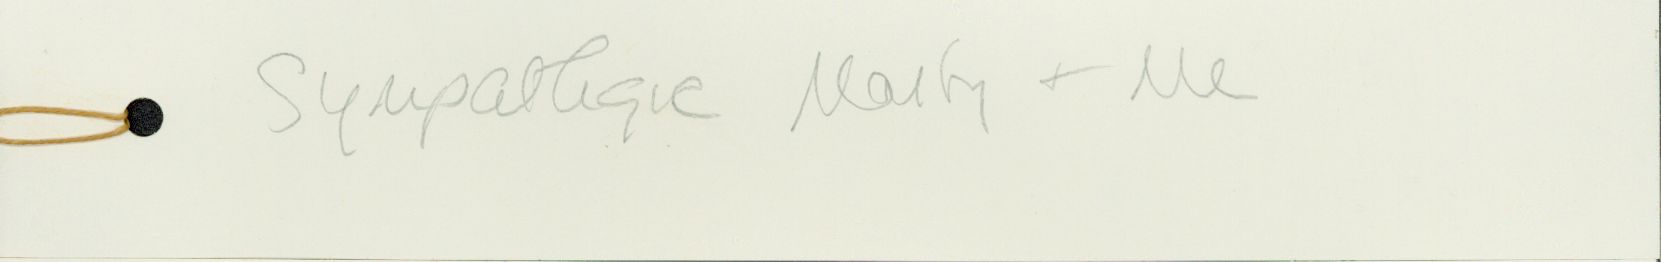 Sympathique Marty + Me